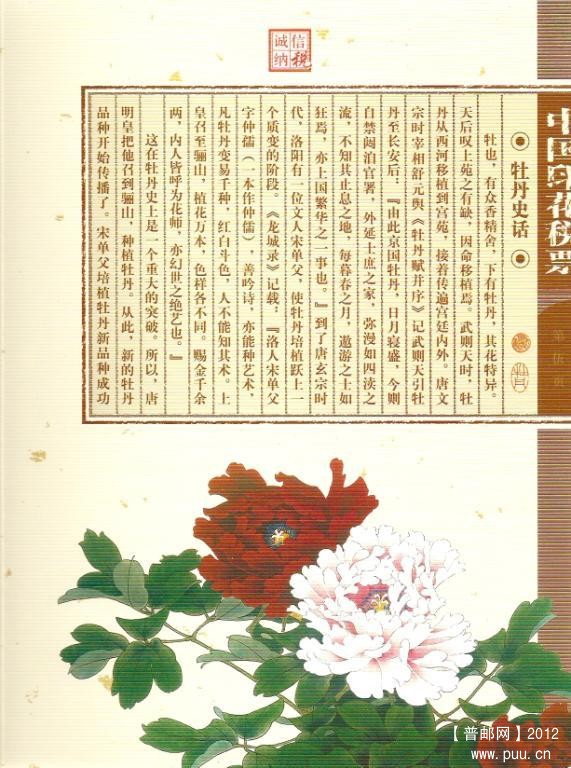 诚信
纳税
中国印花税票
第伍页
牡丹史话
牡也，有众香精舍，下有牡丹，其花特异。
天后叹上苑之有缺，因命移植焉。武则天时，牡
丹从西河移植到宫苑，接着传遍宫廷内外。唐文
宗时宰相舒元舆《牡丹赋并序》记武则天引牡
丹至长安后：『由此京国牡丹，日月寖盛，今则
自禁闼洎官署，外延士庶之家，弥漫如四渎之
流，不知其止息之地，每暮春之月，遨游之士如
狂焉，亦上国繁华之一事也。』到了唐玄宗时
代，洛阳有一位文人宋单父，使牡丹培植跃上一
个质变的阶段。《龙城录》记载：『洛人宋单父
字仲儒（一本作仲儒），善吟诗，亦能种艺术，
凡牡丹变易千种，红白斗色，人不能知其术。上
皇召至骊山，植花万本，色样各不同。赐金千余
两，内人皆呼为花师，亦幻世之绝艺也。』
这在牡丹史上是一个重大的突破。所以，唐
明皇把他召到骊山，种植牡丹。从此，新的牡丹
品种开始传播了。宋单父培植牡丹新品种成功
【普邮网】2012
www.puu.cn